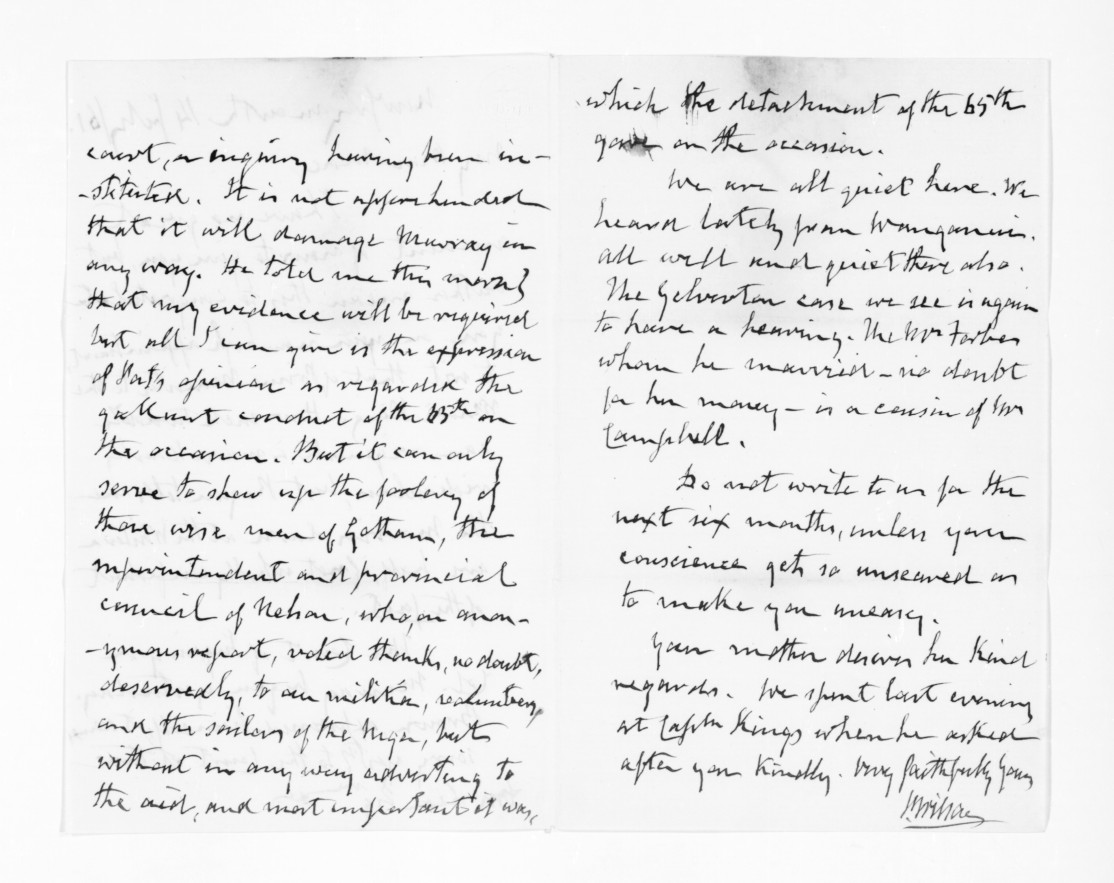 court, or inquiry having been in-
-stituted. It is not apprehended
that it will damage Murray in
any way. He told me this
that my evidence will be required
but all I can give is the expression
of opinion as regards the
gallant conduct of the 65th on
the occasion. But it can only
serve to shew up the foolery of
those wise men of Gotham, the
superintendent and provincial
council of Nelson, who, on anon-
-ymous report, voted thanks, no doubt,
deservedly, to our militia, volunteers,
and the sailors of the Niger, but
without in any way adverting to
the aid, and most important it was,
which the detachment of the 65th
gave on the occasion.
We are all quiet here. We
heard lately from Wanganui.
All well and quiet there also.
The Yelverton case we see is again
to have a hearing. The Mrs Forbes
whom he married - no doubt
for her money - is a cousin of Mrs
Campbell.
Do not write to us for the
next six months, unless your
conscience gets so unseared as
to make you uneasy.
Your mother desires her kind
regards. We spent last evening
at Captn Kings when he asked
after you kindly. Very faithfully Yours